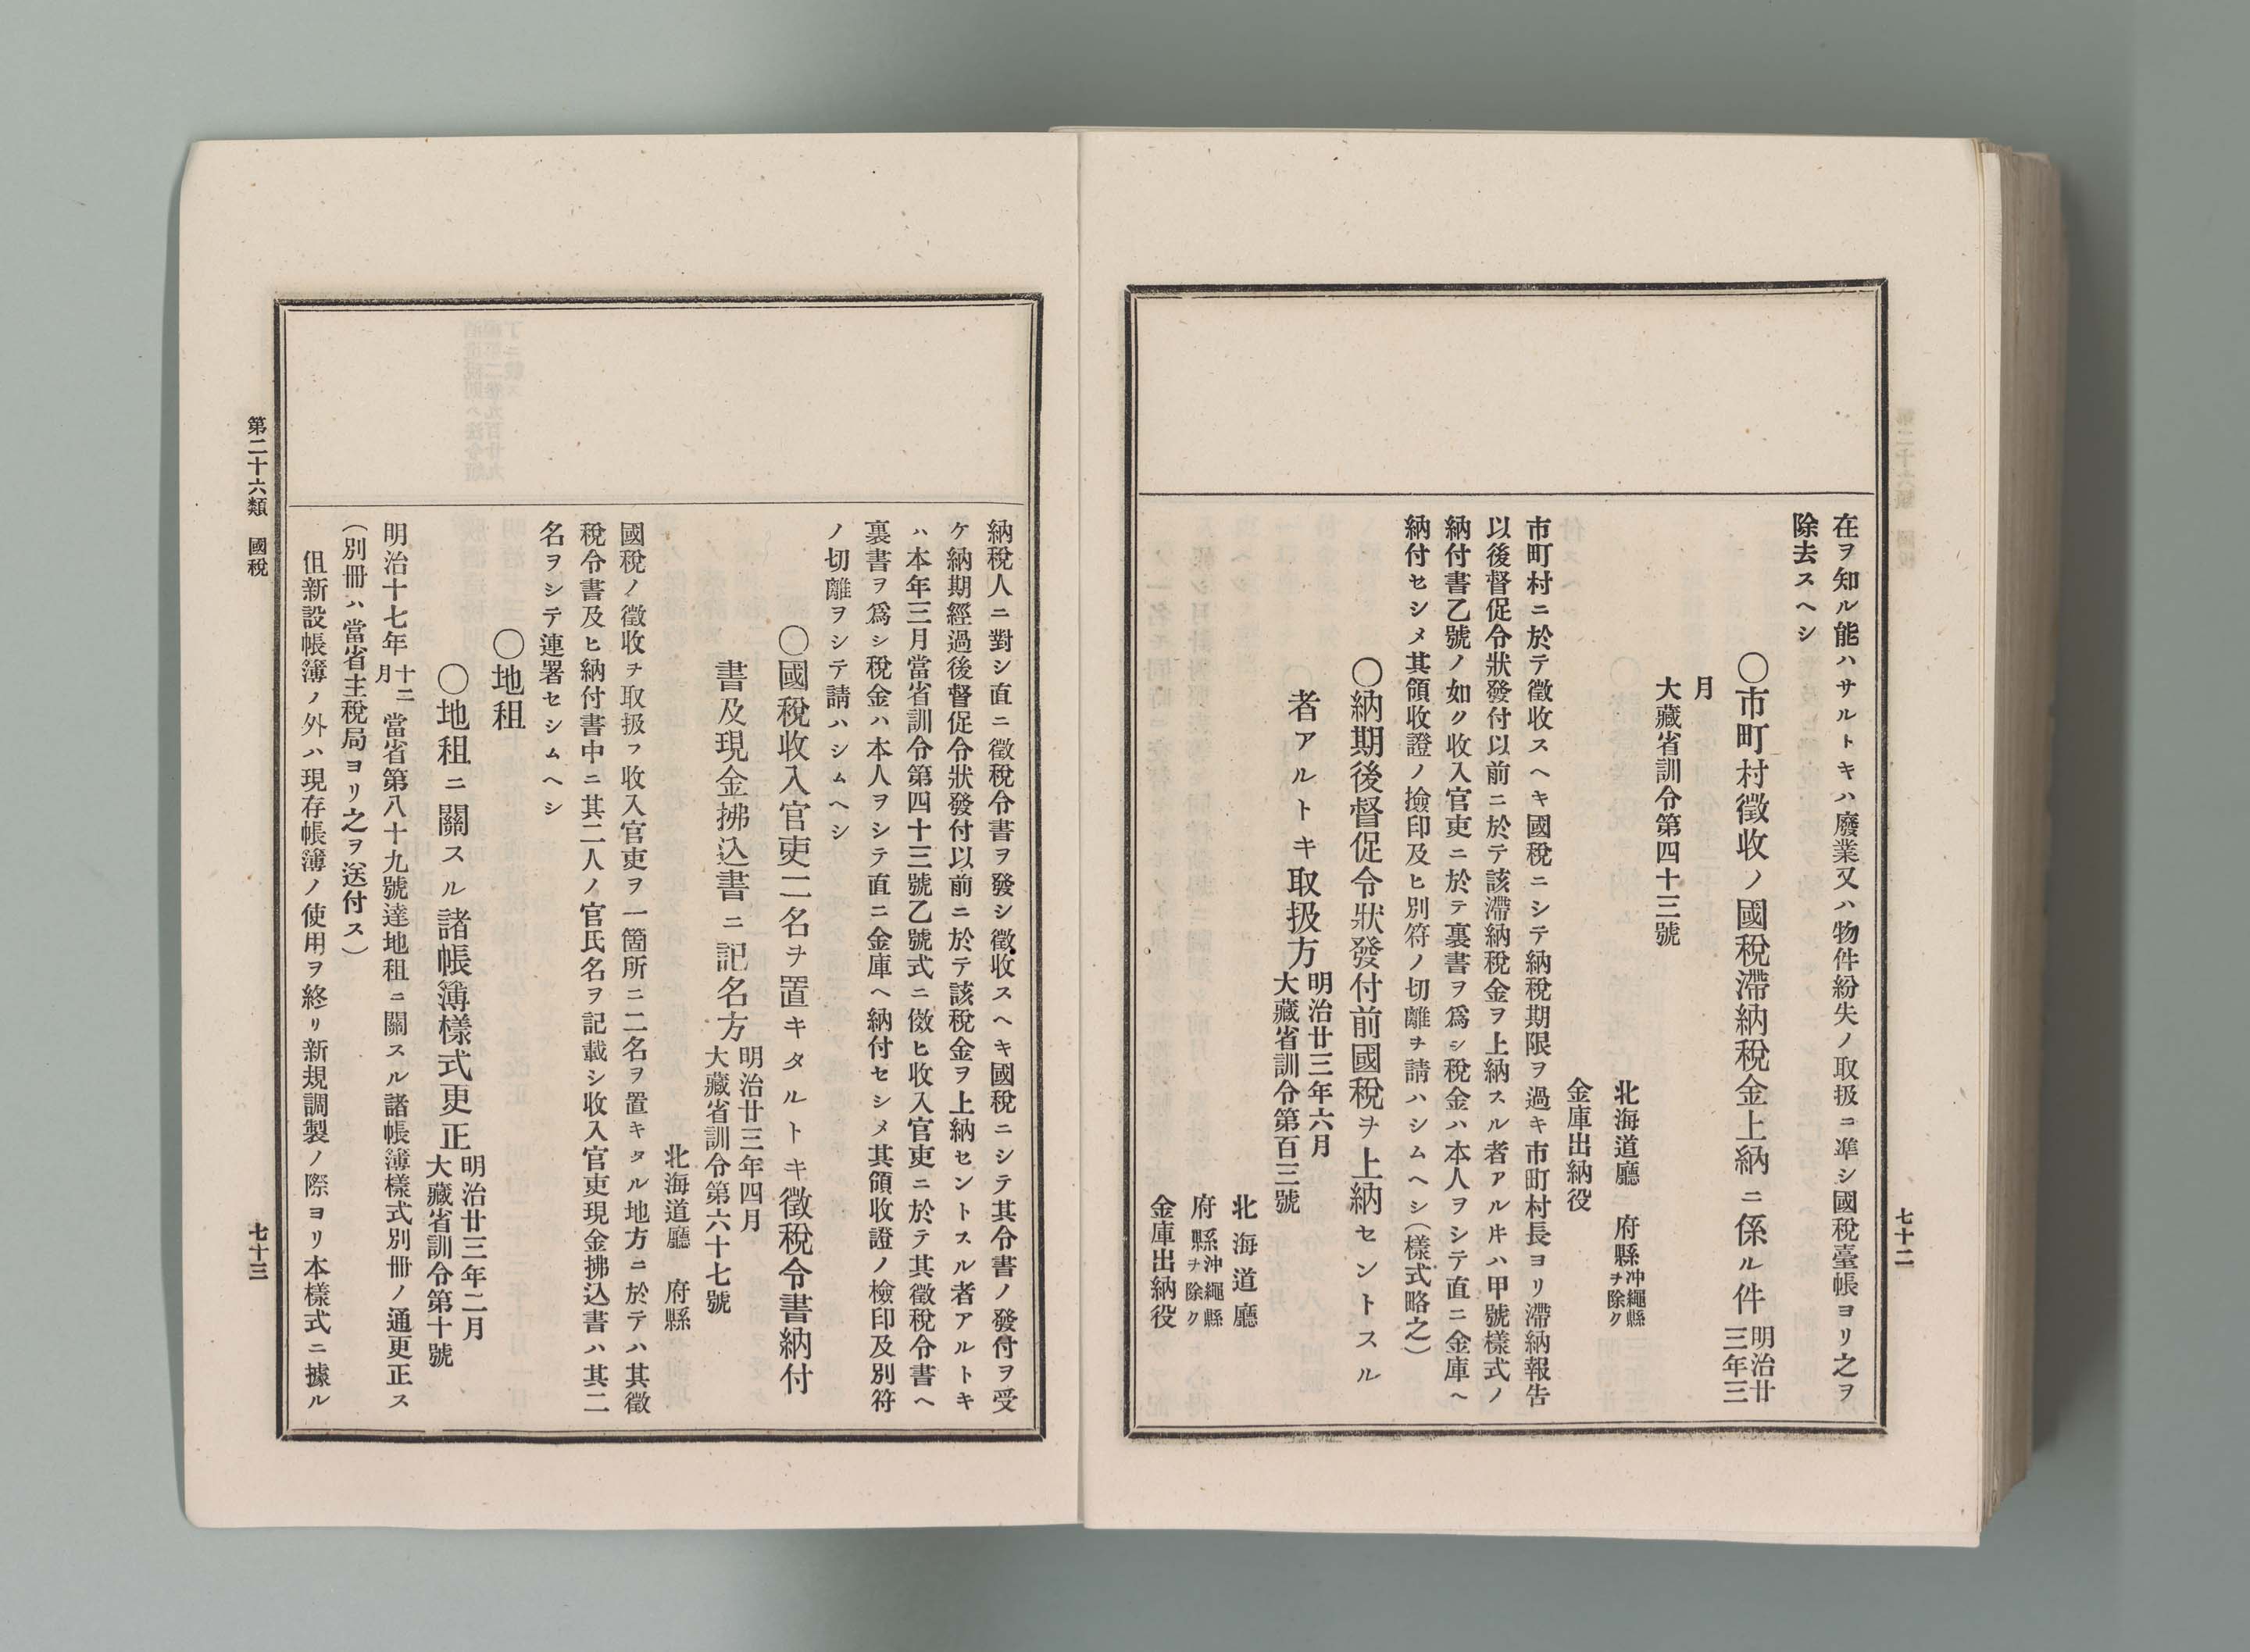 七十二
在ヲ知ル能ハサルトキハ廢業又ハ物件紛失ノ取扱ニ準シ國稅臺帳ヨリ之ヲ
除去スヘシ
〇市町村徵收ノ國稅滯納稅金上納ニ係ル件 明治廿三年三
月
大藏省訓令第四十三號
北海道廳 府縣 沖繩縣ヲ除ク
金庫出納役
市町村ニ於テ徵收スヘキ國稅ニシテ納稅期限ヲ過キ市町村長ヨリ滯納報告
以後督促令狀發付以前ニ於テ該滯納稅金ヲ上納スル者アルキハ甲號樣式ノ
納付書乙號ノ如ク收入官吏ニ於テ裏書ヲ爲シ稅金ハ本人ヲシテ直ニ金庫ヘ
納付セシメ其領收證ノ撿印及ヒ別符ノ切離ヲ請ハシムヘシ(樣式略之)
〇納期後督促令狀發付前國稅ヲ上納セントスル
者アルトキ取扱方 明治廿三年六月
大藏省訓令第百三號
北海道廳
府縣 沖繩縣ヲ除ク
金庫出納役
納稅人ニ對シ直ニ徵稅令書ヲ發シ徵收スヘキ國稅ニシテ其令書ノ發付ヲ受
ケ納期經過後督促令狀發付以前ニ於テ該稅金ヲ上納セントスル者アルトキ
ハ本年三月當省訓令第四十三號乙號式ニ傚ヒ收入官吏ニ於テ其徵稅令書ヘ
裏書ヲ爲シ稅金ハ本人ヲシテ直ニ金庫ヘ納付セシメ其領收證ノ檢印及別符
ノ切離ヲシテ請ハシムヘシ
〇國稅收入官吏二名ヲ置キタルトキ徵稅令書納付
書及現金拂込書ニ記名方 明治廿三年四月
大藏省訓令第六十七號
北海道廳 府縣
國稅ノ徵收ヲ取扱フ收入官吏ヲ一箇所ニ二名ヲ置キタル地方ニ於テハ其徵
稅令書及ヒ納付書中ニ其二人ノ官氏名ヲ記載シ收入官吏現金拂込書ハ其二
名ヲシテ連署セシムヘシ
〇地租
〇地租ニ關スル諸帳簿樣式更正 明治廿三年二月
大藏省訓令第十號
明治十七年十二月當省第八十九號達地租ニ關スル諸帳簿樣式別冊ノ通更正ス
(別冊ハ當省主稅局ヨリ之ヲ送付ス)
伹新設帳簿ノ外ハ現存帳簿ノ使用ヲ終リ新規調製ノ際ヨリ本樣式ニ據ル
第二十六類 國稅
七十三